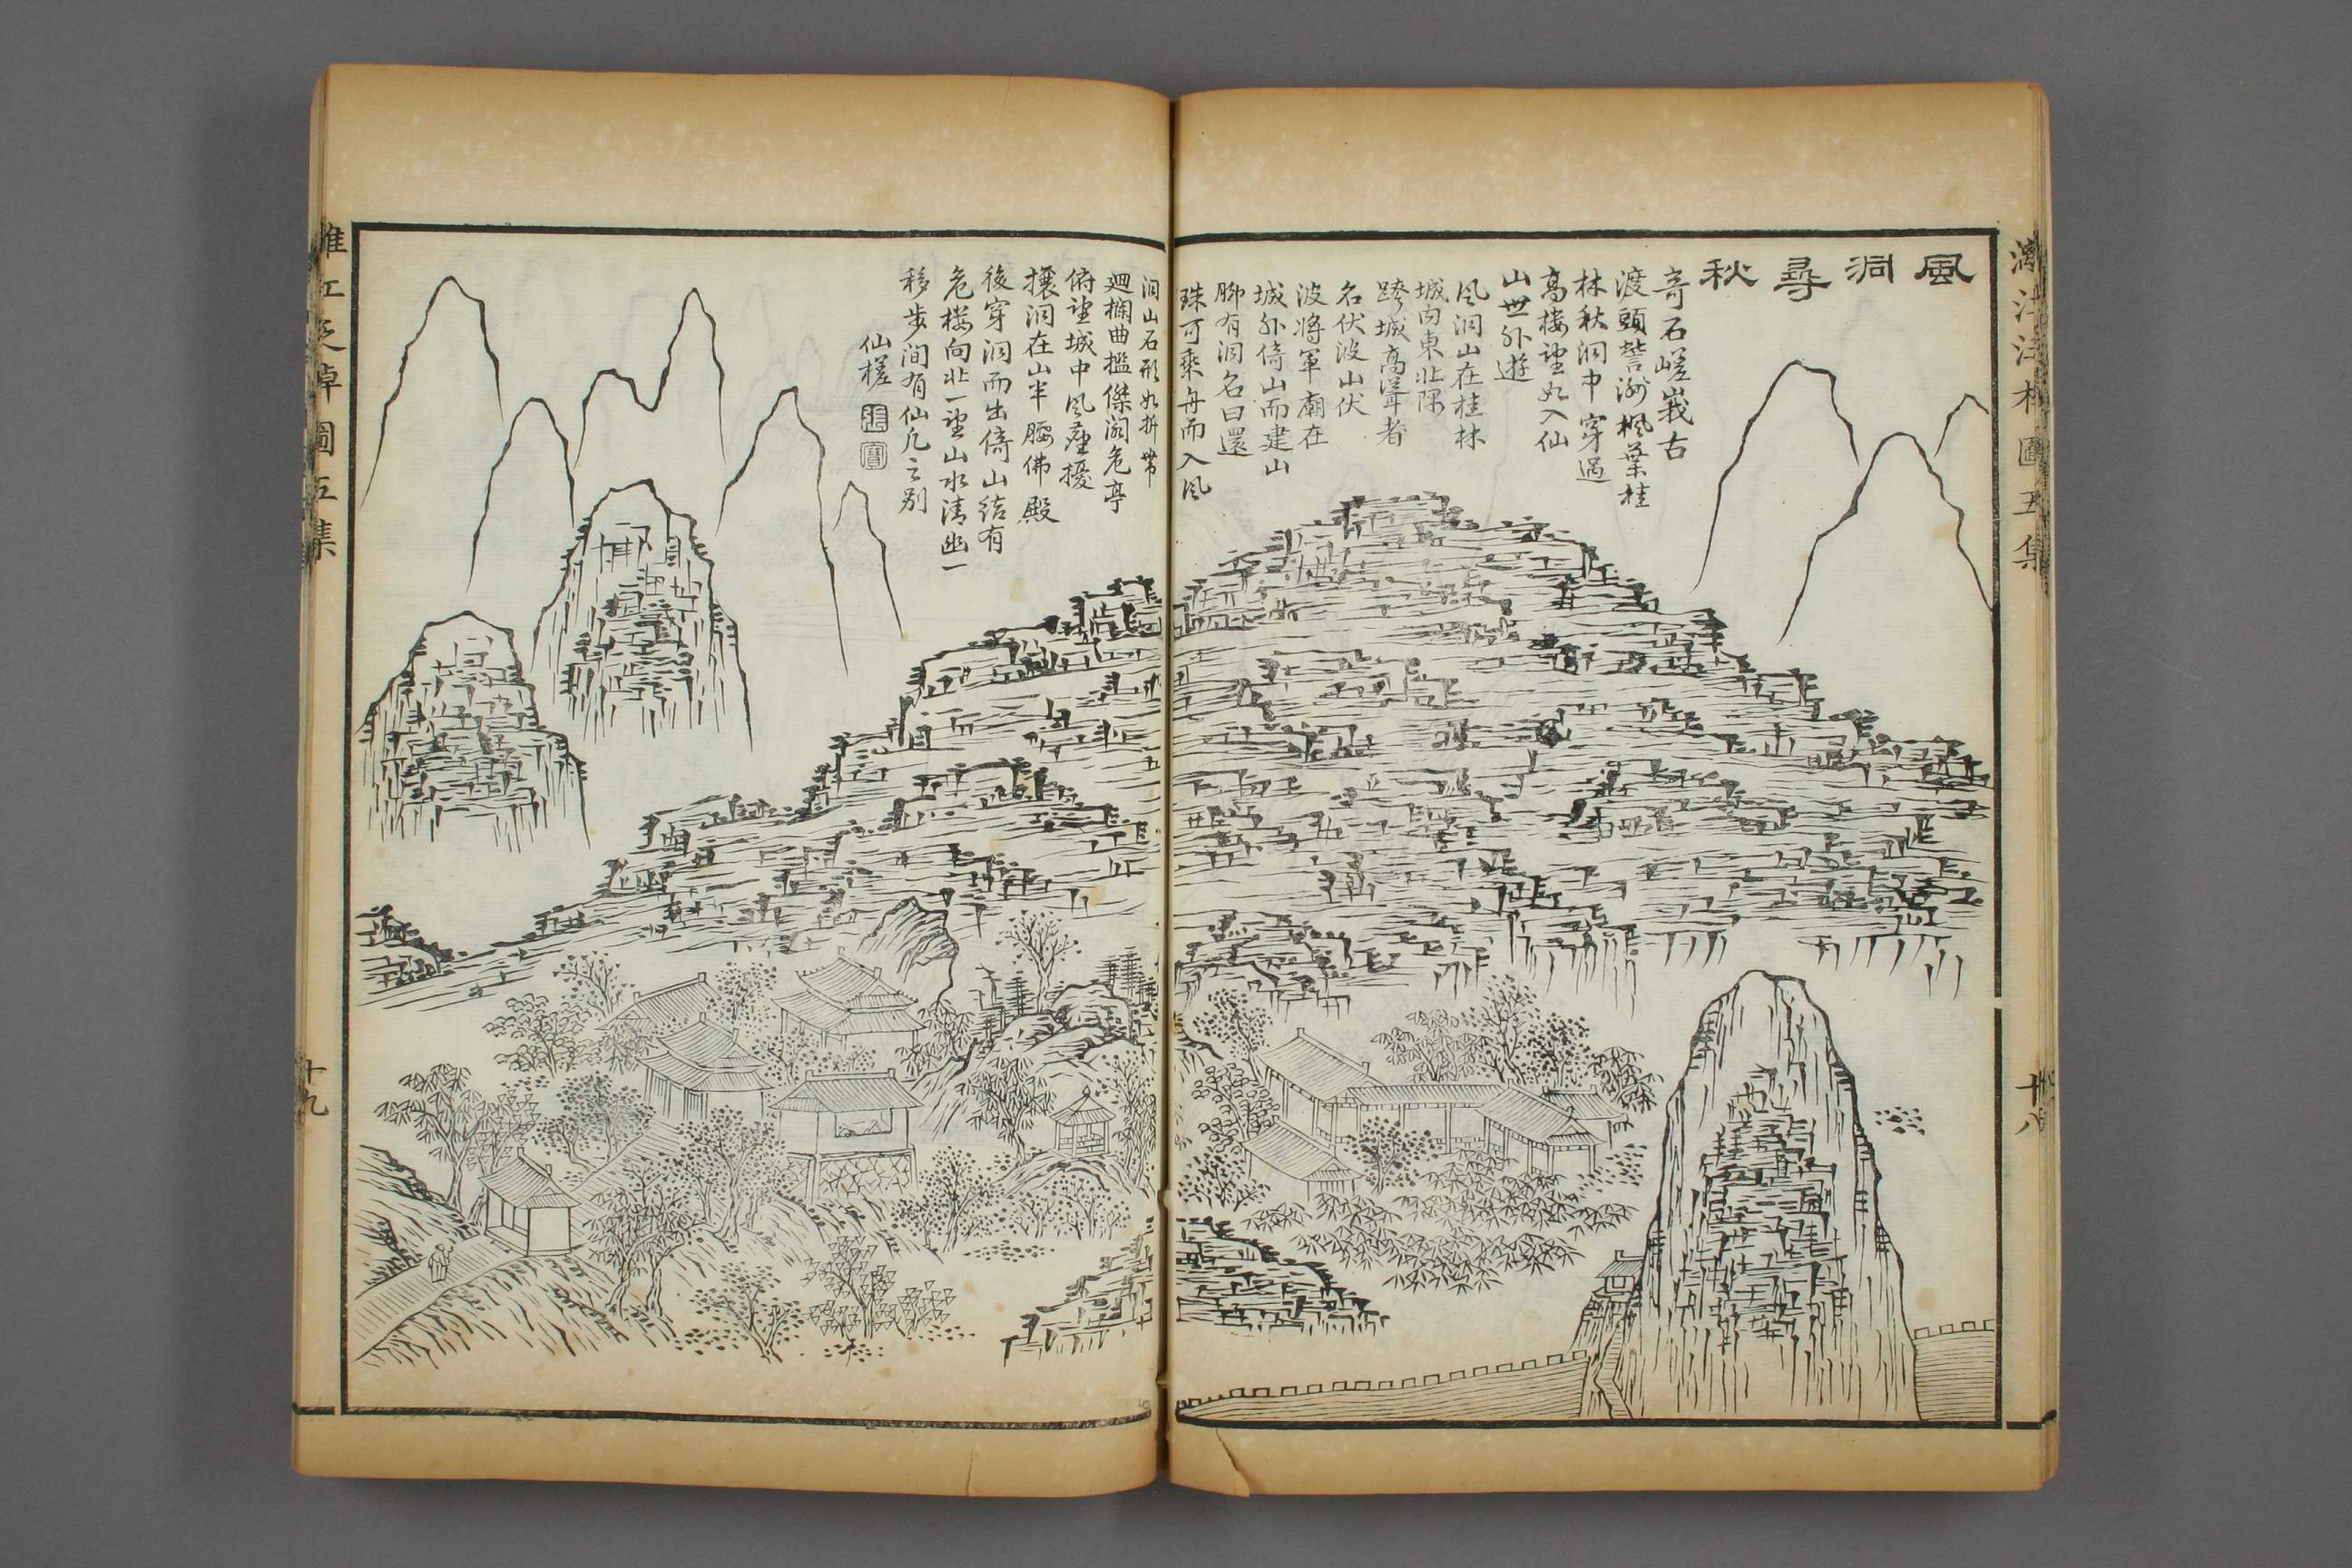 風洞尋秋
奇石嵯峩古
渡頭訾洲楓葉桂
林秋洞中穿過
高樓望如入仙
山世外遊
風洞山在桂林
城內東北隅
跨城高聳者
名伏波山伏
波將軍廟在
城外倚山而建山
腳有洞名曰還
珠可乘舟而入風
洞山石形如折帶
廻欄曲檻傑閣危亭
俯望城中風塵擾
攘洞在山半腰佛殿
後穿洞而出倚山結有
危樓向北一望山水清幽一
移步間有仙凡之別
仙槎
張寶
漓江泛棹圖五集
十八
漓江泛棹圖五集
十九